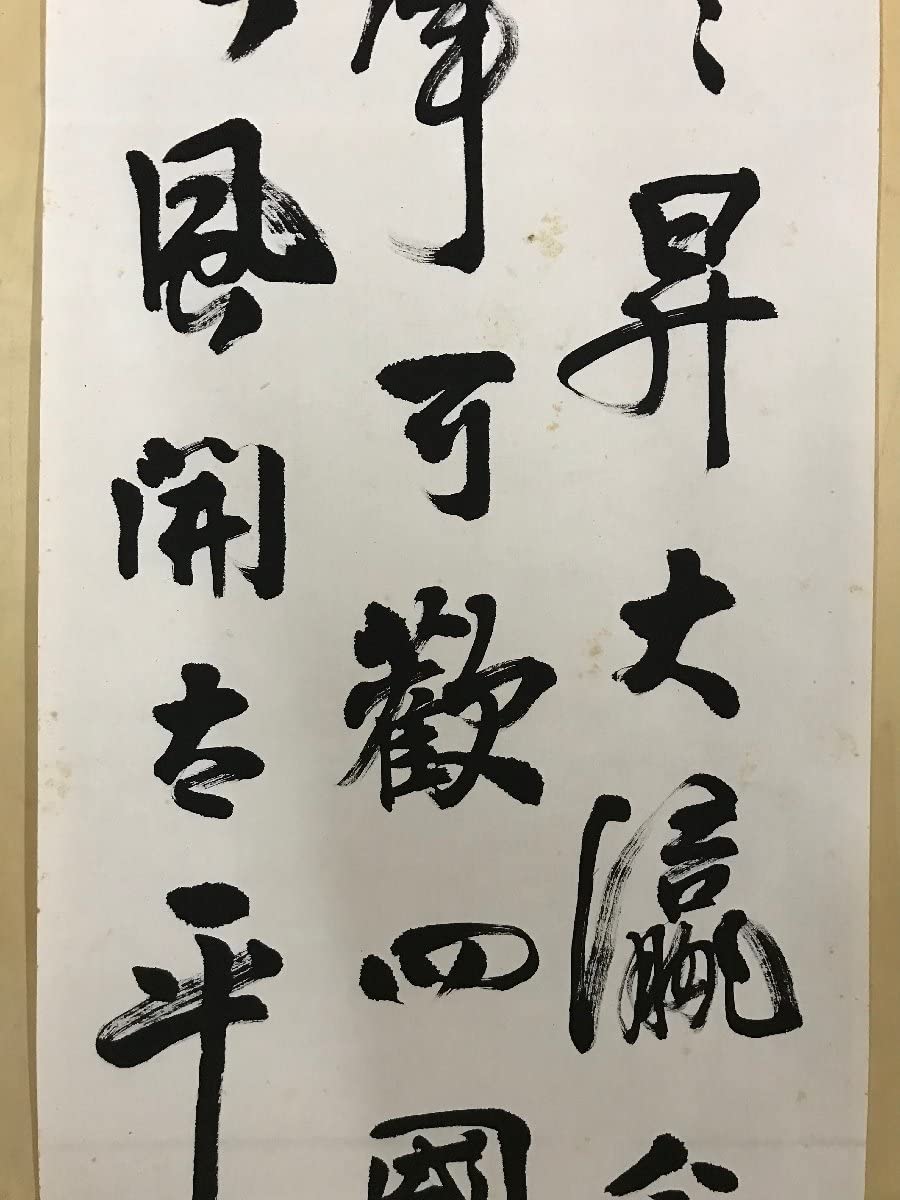 昇大瀛
可歡四國
風開太平